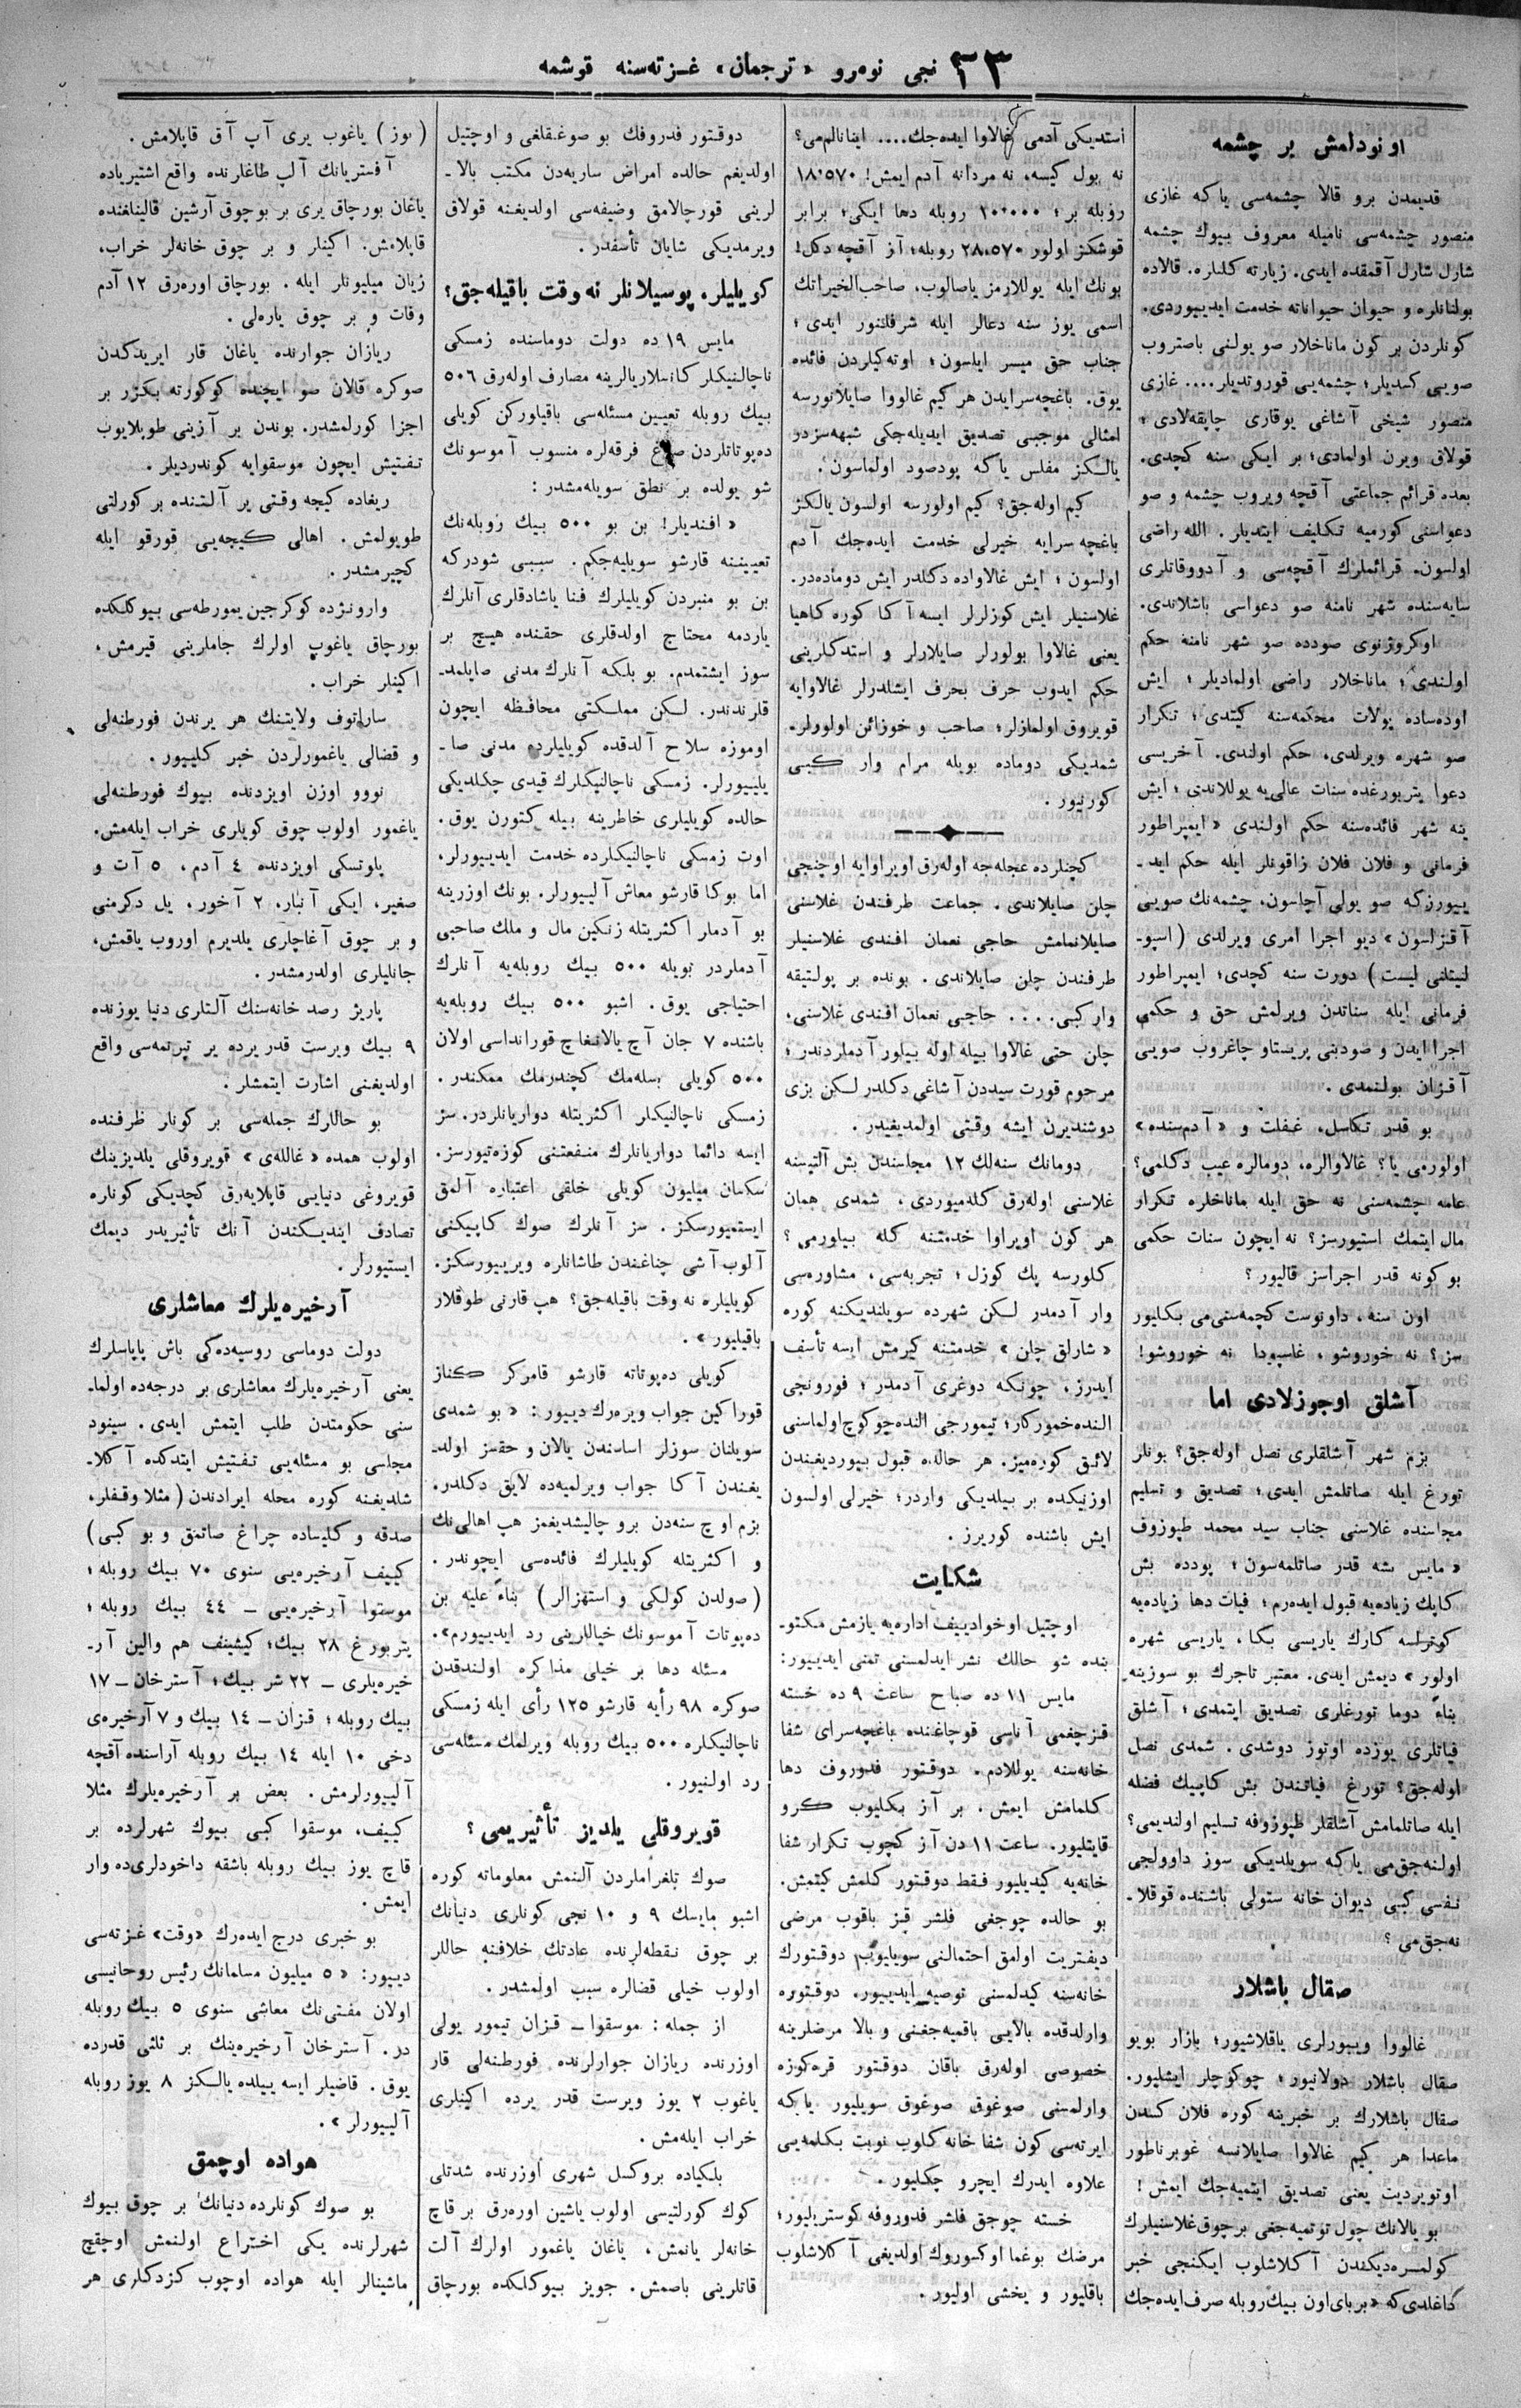 ٣٣ نجی نومرو «ترجمان» غـزتەسنە قوشمە
اونودلمش بر چشمە
قدیمدن برو قالا چشمەسی یاکە غازی
منصور چشمەسی نامیلە معروف بیوك چشمە
شارل شارل آقمقدە ایدی. زیارتە کلنلرە، قالادە
بولنانلرە و حیوان حیواناتە خدمت ایدییوردی.
کونلردن بر کون ماناخلار صو یولنی باصتروب
صویی کسدیلر؛ چشمەیی قوروتدیلر.... غازی
منصور شیخی آشاغی یوقاری چاپقەلادی؛
قولاق ویرن اولمادی؛ بر ایکی سنە کچدی.
بعدە قرائم جماعتی آقچە ویروب چشمە و صو
دعواسنی کورمیە تکلیف ایتدیلر. اللە راضی
اولسون. قرائملرك آقچەسی و آدووقاتلری
سایەسندە شهر نامنە صو دعواسی باشلاندی.
اوکروژنوی صوددە صو شهر نامنە حکم
اولندی؛ ماناخلار راضی اولمادیلر؛ ایش
اودەسادە پولات محکمەسنە کیتدی؛ تکرار
صو شهرە ویرلدی، حکم اولندی. آخریسی
دعوا پتربورغدە سنات عالی‌یە یوللاندی؛ ایش
ینە شهر فائدەسنە حکم اولندی «ایمپراطور
فرمانی و فلان فلان زاقونلر ایلە حکم ایدـ
ییورزکە صو یولی آچلسون، چشمەنك صویی
آقزلسون» دیو اجرا امری ویرلدی (اسپوـ
لنیتلنی لیست) دورت سنە کچدی؛ ایمپراطور
فرمانی ایلە سناتدن ویرلمش حق و حکمی
اجرا ایدن و صودبنی پریستاو چاغروب صویی
آقزان بولنمدی.
بو قدر تکاسل، غفلت و «آدم‌سندە»
اولورمی یا؟ غالاوالرە، دومالرە عیب دکلمی؟
عامە چشمەسنی نە حق ایلە ماناخلرە تکرار
مال ایتمك استیورسز؟ نە ایچون سنات حکمی
بو کونە قدر اجراسز قالیور؟
اون سنە، داونوست کچمەسنی‌می بکلیور
سز؟ نە خوروشو، غاسپودا نە خوروشو!
آشلق اوجوزلادی اما
بزم شهر آشلقلری نصل اولەجق؟ بونلر
تورغ ایلە صاتلمش ایدی؛ تصدیق و تسلیم
مجلسندە غلاسنی جناب سید محمد طپوزوف
«مایس بشە قدر صاتلمەسون؛ پوددە بش
کاپك زیادەیە قبول ایدەرم؛ فیات دها زیادەیە
کوترلسە کارك یاریسی بکا، یاریسی شهرە
اولور» دیمش ایدی. معتبر تاجرك بو سوزینە
بناءً دوما تورغلری تصدیق ایتمدی؛ آشلق
فیاتلری یوزدە اوتوز دوشدی. شمدی نصل
اولەجق؟ تورغ فیاتندن بش کاپیك فضلە
ایلە صاتلمامش آشلقلر طپوزوفە تسلیم اولندیمی؟
اولنەجق‌می یارکە سویلدیکی سوز داوولجی
نفسی کبی دیوان خانە ستولی باشندە قوقلاـ
نەجق‌می؟
صقال باشلار
غالووا ویبورلری یاقلاشیور؛ بازار بویو
صقال باشلار دولانیور؛ چوکوچلر ایشلیور.
صقال باشلارك بر خبرینە کورە فلان کسدن
ماعدا هر کیم غالاوا صایلانسە غوبرناطور
اوتویردیت یعنی تصدیق ایتمیەجك ایمش!
بو یالانك چول توتمیەجغی برچوق غلاسنیلرك
کولمسرەدیکندن آکلاشلوب ایکنجی خبر
داغلدی‌کە «بربای اون بیك روبلە صرف ایدەجك
استدیکی آدمی غالاوا ایدەجك.... اینانالم‌می؟
نە بول کیسە، نە مردانە آدم ایمش! ١٨٠٥٧٠
روبلە بر؛ ١٠٠٠٠ روبلە دها ایکی؛ برابر
قوشکز اولور ٢٨،٥٧٠ روبلە؛ آز آقچە دکل!
بونك ایلە یوللارمز یاصالوب، صاحب‌الخیراتك
اسمی یوز سنە دعالر ایلە شرفلنور ایدی؛
جناب حق میسر ایلسون؛ اوتەکیلردن فائدە
یوق. باغچەسرایدن هر کیم غالووا صایلانورسە
امثالی موجبی تصدیق ایدیلەجکی شبهەسزدر
یالـکز مفلس یاکە پودصود اولماسون.
کیم اولەجق؟ کیم اولورسە اولسون یالکز
باغچە سرایە خیرلی خدمت ایدەجك آدم
اولسون؛ ایش غالاوادە دکلدر ایش دومادەدر.
غلاسنیلر ایش کوزلرلر ایسە آکا کورە کاهیا
یعنی غالاوا بولورلر صایلارلر و استدکلرینی
حکم ایدوب حرف بحرف ایشلدرلر غالاوایە
قویروق اولمازلر؛ صاحب و خوزائن اولورلر.
شمدیکی دومادە بویلە مرام وار کبی
کورنیور.
کچنلردە عجلەجە اولەرق اویراوایە اوچنجی
چلن صایلاندی. جماعت طرفندن غلاسنی
صایلانمامش حاجی نعمان افندی غلاسنیلر
طرفندن چلن صایلاندی. بوندە بر پولتیقە
وار کبی.... حاجی نعمان افندی غلاسنی،
چلن حتی غالاوا بیلە اولە بیلور آدملردندر؛
مرحوم قورت سیددن آشاغی دکلدر لـکن بزی
دوشندیرن ایشە وقتی اولمدیغیدر.
دومانك سنەلك ١٢ مجلسندن بش آلتیسنە
غلاسنی اولەرق کلەمیوردی، شمدی همان
هر کون اویراوا خدمتنە کلە بیلورمی؟
کلورسە پك کوزل؛ تجربەسی، مشاورەسی
وار آدمدر لـکن شهردە سویلندیکنە کورە
«شارلق چلن» خدمتنە کیرمش ایسە تأسف
ایدرز، چونکە دوغری آدمدر؛ فورونجی
الندە خمورکار؛ تیمورجی الندە چوکوچ اولماسنی
لائق کورەمیز. هر حالدە قبول بیوردیغندن
اوزنیکدە بر بیلدیکی واردر؛ خیرلی اولسون
ایش باشندە کوریرز.
شکایت
اوچتیل اوخوادییف ادارەیە یازمش مکتوـ
بندە شو حالك نشر ایدلمسنی تمنی ایدییور:
مایس ١١ دە صباح ساعت ٩ دە خستە
قزچغمی آناسی قوچاغندە باغچەسرای شفا
خانەسنە یوللادم. دوقتور فدوروف دها
کلمامش ایمش، بر آز بکلیوب کرو
قایتلیور. ساعت ١١ دن آز کچوب تکرار شفا
خانەیە کیدیلیور فقط دوقتور کلمش کیتمش.
بو حالدە چوجغی فلشر قیز باقوب مرضی
دیفتریت اولمق احتمالنی سویلیوب دوقتورك
خانەسنە کیدلمسنی توصیە ایدییور. دوقتورە
وارلدقدە بالایی باقمیەجغنی و بالا مرضلرینە
خصوصی اولەرق باقان دوقتور قرەکوزە
وارلمسنی صوغوق صوغوق سویلیور یاکە
ایرتەسی کون شفا خانە کلوب نوبت بکلمەیی
علاوە ایدرك ایچرو چکلیور.
خستە چوجق فلشر فدوروفە کوستریلیور؛
مرضك بوغما اوکسوروك اولدیغی آکلاشلوب
باقلیور و یخشی اولیور.
دوقتور فدروفك بو صوغقلغی و اوچتیل
اولدیغم حالدە امراض ساریەدن مکتب بالاـ
لرینی قورچالامق وضیفەسی اولدیغنە قولاق
ویرمدیکی شایان تأسفدر.
کویلیلر، پوسیلانلر نە وقت باقیلەجق؟
مایس ١٩ دە دولت دوماسندە زمسکی
ناچالنیکلر کانسلاریالرینە مصارف اولەرق ٥٠٦
بیك روبلە تعیین مسئلەسی باقیلورکن کویلی
دەپوتاتلردن صاغ فرقەلرە منسوب آموسونك
شو یولدە بر نطق سویلەمشدر:
«افندیلر! بن بو ٥٠٠ بیك روبلەنك
تعییننە قارشو سویلیەجکم. سببی شودرکە
بن بو منبردن کویلیلرك فنا یاشادقلری آنلرك
یاردمە محتاج اولدقلری حقندە هیچ بر
سوز ایشتمدم. بو بلکە آنلرك مدنی صایلمدـ
قلرندندر. لـکن مملـکتی محافظە ایچون
اوموزە سلاح آلدقدە کویلیلردە مدنی صاـ
یلییورلر. زمسکی ناچالنیکلرك قیدی چکلدیکی
حالدە کویلیلری خاطرینە بیلە کتورن یوق.
اوت زمسکی ناچالنیکلردە خدمت ایدییورلر،
اما بوکا قارشو معاش آلییورلر. بونك اوزرینە
بو آدملر اکثریتلە زنکین مال و ملك صاحبی
آدملردر بویلە ٥٠٠ بیك روبلەیە آنلرك
احتیاجی یوق. اشبو ٥٠٠ بیك روبلەیە
باشندە ٧ جان آچ یالانغاچ قورانداسی اولان
٥٠٠ کویلی بسلەمك کچندرمك ممکندر.
زمسکی ناچالنیکلر اکثریتلە دواریانلردر. سز
ایسە دائما دواریانلرك منفعتنی کوزەتیورسز.
سکسان میلیون کویلی خلقی اعتبارە آلمق
ایستمیورسکز. سز آنلرك صوك کاپیکنی
آلوب آشی چناغندن طاشانلرە ویرییورسکز.
کویلیلرە نە وقت باقیلەجق؟ هپ قارنی طوقلار
باقیلیور».
کویلی دەپوتاتە قارشو قامرکر کناز
قوراکین جواب ویرەرك دییور: «بو شمدی
سویلنان سوزلر اساسندن یالان و حقسز اولدـ
یغندن آکا جواب ویرلمیەدە لایق دکلدر.
بزم اوچ سنەدن برو چالیشدیغمز هپ اهالی‌نك
و اکثریتلە کویلیلرك فائدەسی ایچوندر.
(صولدن کولکی و استهزالر) بناءً علیە بن
دەپوتات آموسونك خیاللرینی رد ایدییورم».
مسئلە دها بر خیلی مذاکرە اولندقدن
صوکرە ٩٨ رأیە قارشو ١٢٥ رأی ایلە زمسکی
ناچالنیکلرە ٥٠٠ بیك روبلە ویرلمك مسئلەسی
رد اولنیور.
قویروقلی یلدیز تأثیریمی؟
صوك تلغراملردن آلنمش معلوماتە کورە
اشبو مایسك ٩ و ١٠ نجی کونلری دنیانك
بر چوق نقطەلرندە عادتك خلافنە حاللر
اولوب خیلی قضالرە سبب اولمشدر.
از جملە: موسقوا ـ قـزان تیمور یولی
اوزرندە ریازان جوارلرندە فورطنەلی قار
یاغوب ٢ یوز ویرست قدر یردە اکینلری
خراب ایلەمش.
بلکیادە بروکسل شهری اوزرندە شدتلی
کوك کورلتیسی اولوب یاشین اورەرق بر قاچ
خانەلر یانمش، یاغان یاغمور اولرك آلت
قاتلرینی باصمش. جویز بیوکلکدە بورچاق
(بوز) یاغوب یری آپ آق قاپلامش.
آفستریانك آلپ طاغلرندە واقع اشتیریادە
یاغان بورچاق یری بر بوچوق آرشین قالینلغندە
قاپلامش. اکینلر و بر چوق خانەلر خراب،
زیان میلیونلر ایلە. بورچاق اورەرق ١٢ آدم
وفات و بر چوق یارەلی.
ریازان جوارندە یاغان قار ایریدکدن
صوکرە قالان صو ایچندە کوکورتە بکزر بر
اجزا کورلمشدر. بوندن بر آزینی طوپلایوب
تفتیش ایچون موسقوایە کوندردیلر.
ریغادە کیجە وقتی یر آلـتندە بر کورلتی
طویولمش. اهالی کیجەیی قورقو ایلە
کچیرمشدر.
وارونژدە کوکرجین یمورطەسی بیوکلکدە
بورچاق یاغوب اولرك جاملرینی قیرمش،
اکینلر خراب.
ساراتوف ولایتنك هر یرندن فورطنەلی
و قضالی یاغمورلردن خبر کلییور.
نووو اوزن اویزدندە بیوك فورطنەلی
یاغمور اولوب چوق کویلری خراب ایلەمش.
پلوتسکی اویزدندە ٤ آدم، ٥ آت و
صغیر، ایکی آنبار، ٢ آخور، یل دکرمنی
و بر چوق آغاچلری یلدیرم اوروب یاقمش،
جانلیلری اولدرمشدر.
پاریژ رصد خانەسنك آلتلری دنیا یوزندە
٩ بیك ویرست قدر یردە یر تپرتمەسی واقع
اولدیغنی اشارت ایتمشلر.
بو حاللرك جملەسی بر کونلر ظرفندە
اولوب همدە «غاللەی» قویروقلی یلدیزینك
قویروغی دنیایی قاپلایەرق کچدیکی کونلرە
تصادف ایتدیـکندن آنك تأثیریدر دیمك
ایستیورلر.
آرخیرەیلرك معاشلری
دولت دوماسی روسیەدەکی باش پاپاسلرك
یعنی آرخیرەیلرك معاشلری بر درجەدە اولماـ
سنی حکومتدن طلب ایتمش ایدی. سینود
مجلسی بو مسئلەیی تفتیش ایتدکدە آکلاـ
شلدیغنە کورە محلە ایرادندن (مثلا وقفلر،
صدقە و کلیسادە چراغ صاتمق و بو کبی)
کییف آرخیرەیی سنوی ٧٠ بیك روبلە؛
موسقوا آرخیرەیی ـ ٤٤ بیك روبلە؛
پتربورغ ٢٨ بیك؛ کیشینف هم والین آرـ
خیرەیلری ـ ٢٢ شر بیك؛ آسترخان ـ ١٧
بیك روبلە؛ قـزان ـ ١٤ بیك و ٧ آرخیرەی
دخی ١٠ ایلە ١٤ بیك روبلە آراسندە آقچە
آلییورلرمش. بعض بر آرخیرەیلرك مثلا
کییف، موسقوا کبی بیوك شهرلردە بر
قاچ یوز بیك روبلە باشقە داخودلری‌دە وار
ایمش.
بو خبری درج ایدەرك «وقت» غـزتەسی
دییور: «٥ میلیون مسلمانك رئیس روحانیسی
اولان مفتی‌نك معاشی سنوی ٥ بیك روبلە
در. آسترخان آرخیرەینك بر ثلثی قدردە
یوق. قاضیلر ایسە ییلدە یالـکز ٨ یوز روبلە
آلییورلر».
هوادە اوچمق
بو صوك کونلردە دنیانك بر چوق بیوك
شهرلرندە یکی اختراع اولنمش اوچقچ
ماشینالر ایلە هوادە اوچوب کزدکلری هر